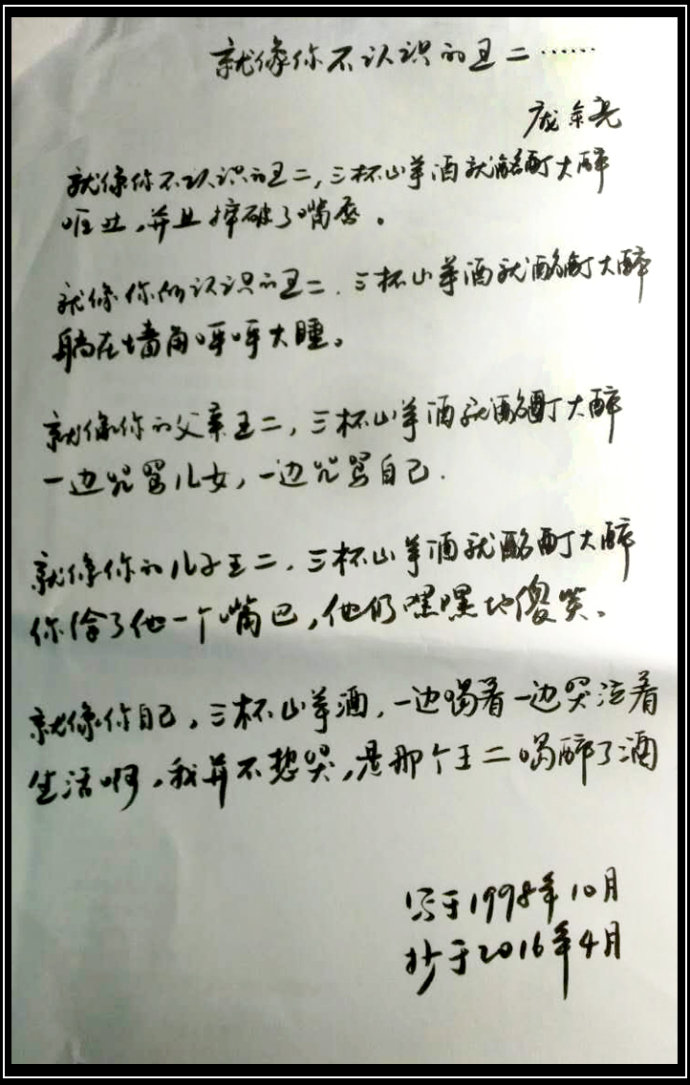 就像你不认识的王二……
庞余亮
就像你不认识的王二，三杯山芋酒就酩酊大醉
呕吐，并且摔破了嘴唇。
就像你所认识的王二，三杯山芋酒就酩酊大醉
躺在墙角呼呼大睡。
就像你的父亲王二，三杯山芋酒就酩酊大醉
一边咒骂儿女，一边咒骂自己.
就像你的儿子王二，三杯山芋酒就酩酊大醉
你给了他一个嘴巴，他仍嘿嘿地傻笑。
就像你自己，三杯山芋酒，一边喝着一边哭泣着
生活啊，我并不想哭，是那个王二喝醉了酒
写于1998年10月
抄于2016年4月